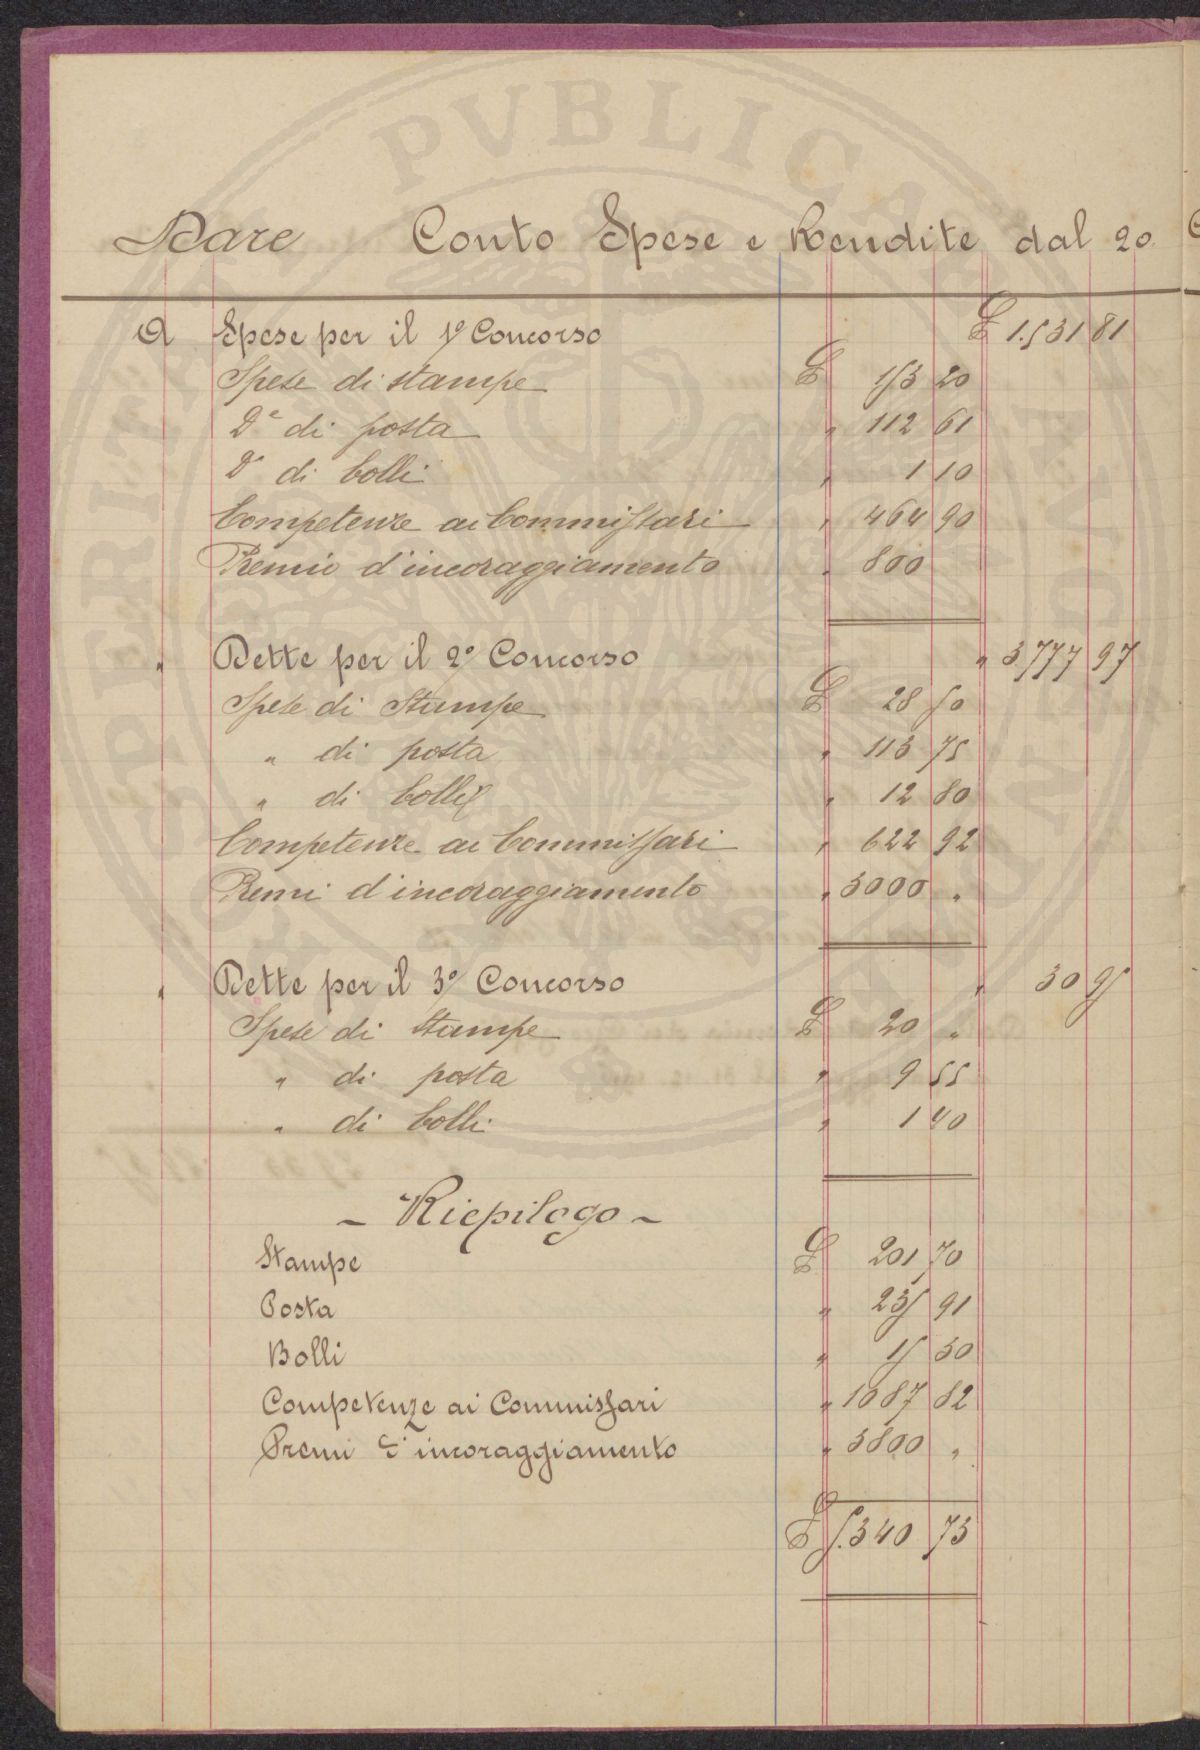 Dare Conto Spese e Rendite dal 20
A Spese per il 1º Concorso £ 1.531 81
Spese di stampe £ 153 20
Dº di posta " 112 61
Dº di bolli " 1 10
Competenze ai Commissari " 464 90
Premii d'incoraggiamento " 800
" Dette per il 2º Concorso " 3777 97
Spese di Stampe £ 28 50
" di posta " 113 75
" di bolli " 12 80
Competenze ai Commissari " 622 92
Premi d'incoraggiamento " 3000 "
" Dette per il 3º Concorso " 30 95
Spese di Stampe £ 20 "
" di posta " 9 55
" di bolli " 1 40
- Riepilogo -
Stampe £ 201 70
Posta " 235 91
Bolli " 15 30
Competenze ai Commissari " 1087 82
Premi d'incoraggiamento " 3800 "
£ 5.340 73